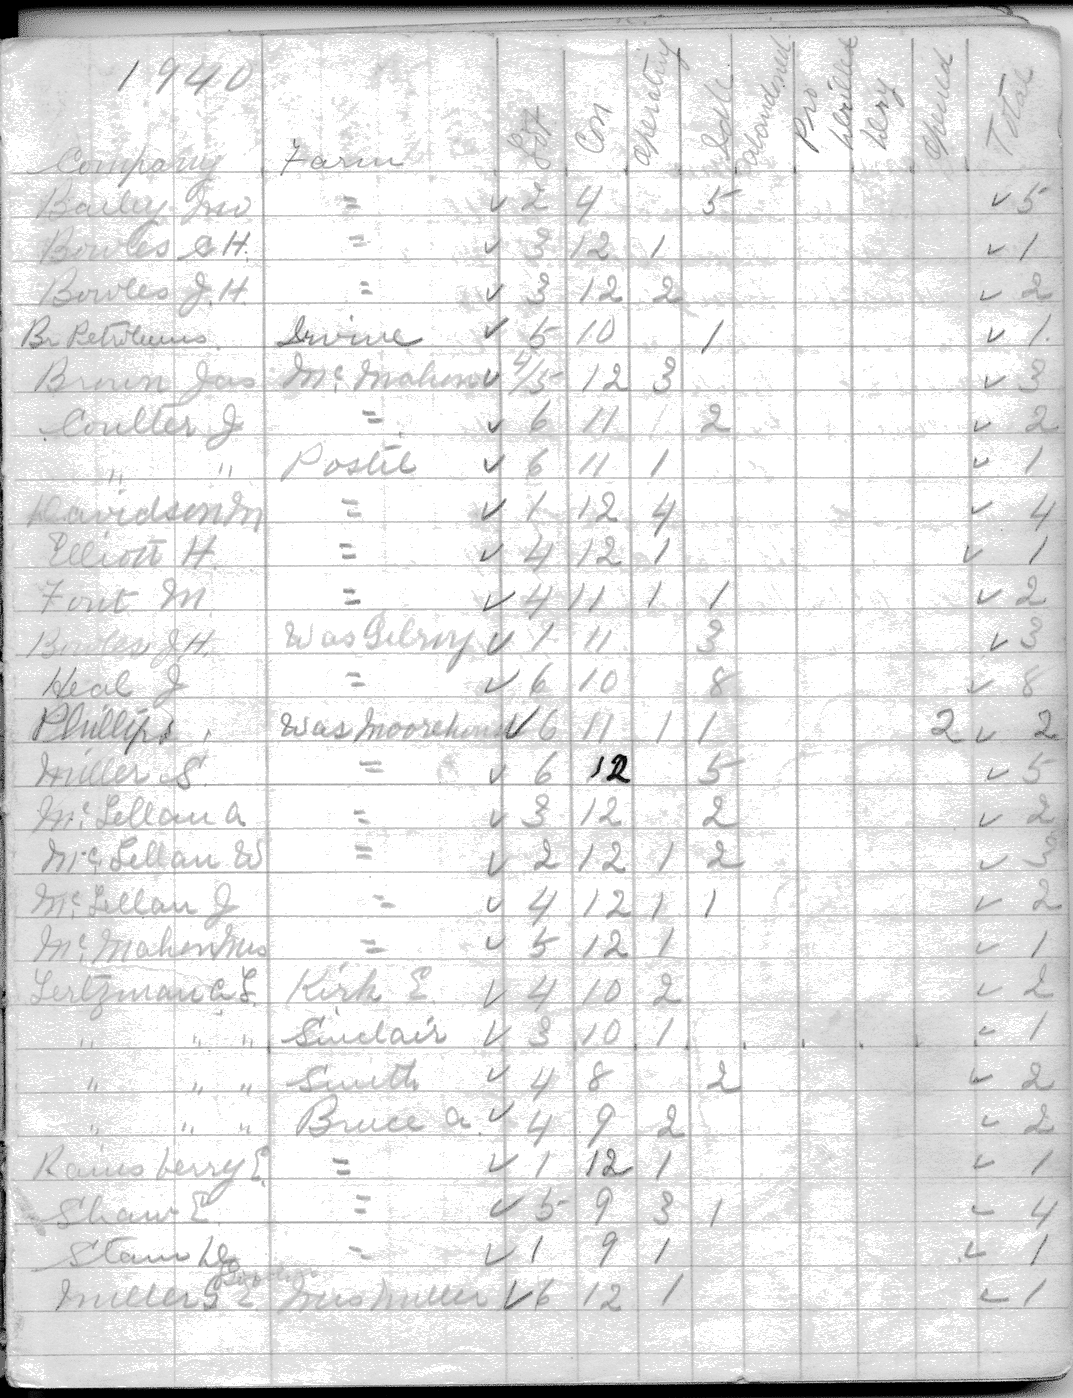 1940
Company Farm Lot Con Operating Idle Abandoned Pro Drilled Dery Opened Total
Bailey Jno = ✓ 2 4 5 ✓ 5
Bowles S H. = ✓ 3 12 1 ✓ 1
Bowles J. H. = ✓ 3 12 2 ✓ 2
Br Petroleums. Irvine ✓ 5 10 1 ✓ 1.
Brown Jas McMahon ✓ 4/5 12 3 ✓ 3
Coulter J = ✓ 6 11 2 ✓ 2
" " Postil ✓ 6 11 1 ✓ 1
Davidson M = ✓ 1 12 4 ✓ 4
Elliott H. = ✓ 4 12 1 ✓ 1
Font M. = ✓ 4 11 1 1 ✓ 2
Bowles J H. Was Gilroy ✓ 1 11 3 ✓ 3
Heal J = ✓ 6 10 8 ✓ 8
Phillips Was Moorehouse ✓ 6 11 1 1 2 ✓ 2
Miller S. = ✓ 6 12 5 ✓ 5
McLellan A = ✓ 3 12 2 ✓ 2
McLellan W = ✓ 2 12 1 2 ✓ 3
McLellan J = ✓ 4 12 1 1 ✓ 2
McMahon Mrs = ✓ 5 12 1 ✓ 1
Lertzman C. L. Kirk E. ✓ 4 10 2 ✓ 2
" " " Sinclair ✓ 3 10 1 ✓ 1
" " " Smith ✓ 4 8 2 ✓ 2
" " " Bruce A. ✓ 4 9 2 ✓ 2
Rainsberry E. = ✓ 1 12 1 ✓ 1
Shaw E. = ✓ 5 9 3 1 ✓ 4
Stam = ✓ 1 9 1 ✓ 1
Miller S E Mrs Miller ✓ 6 12 1 ✓ 1